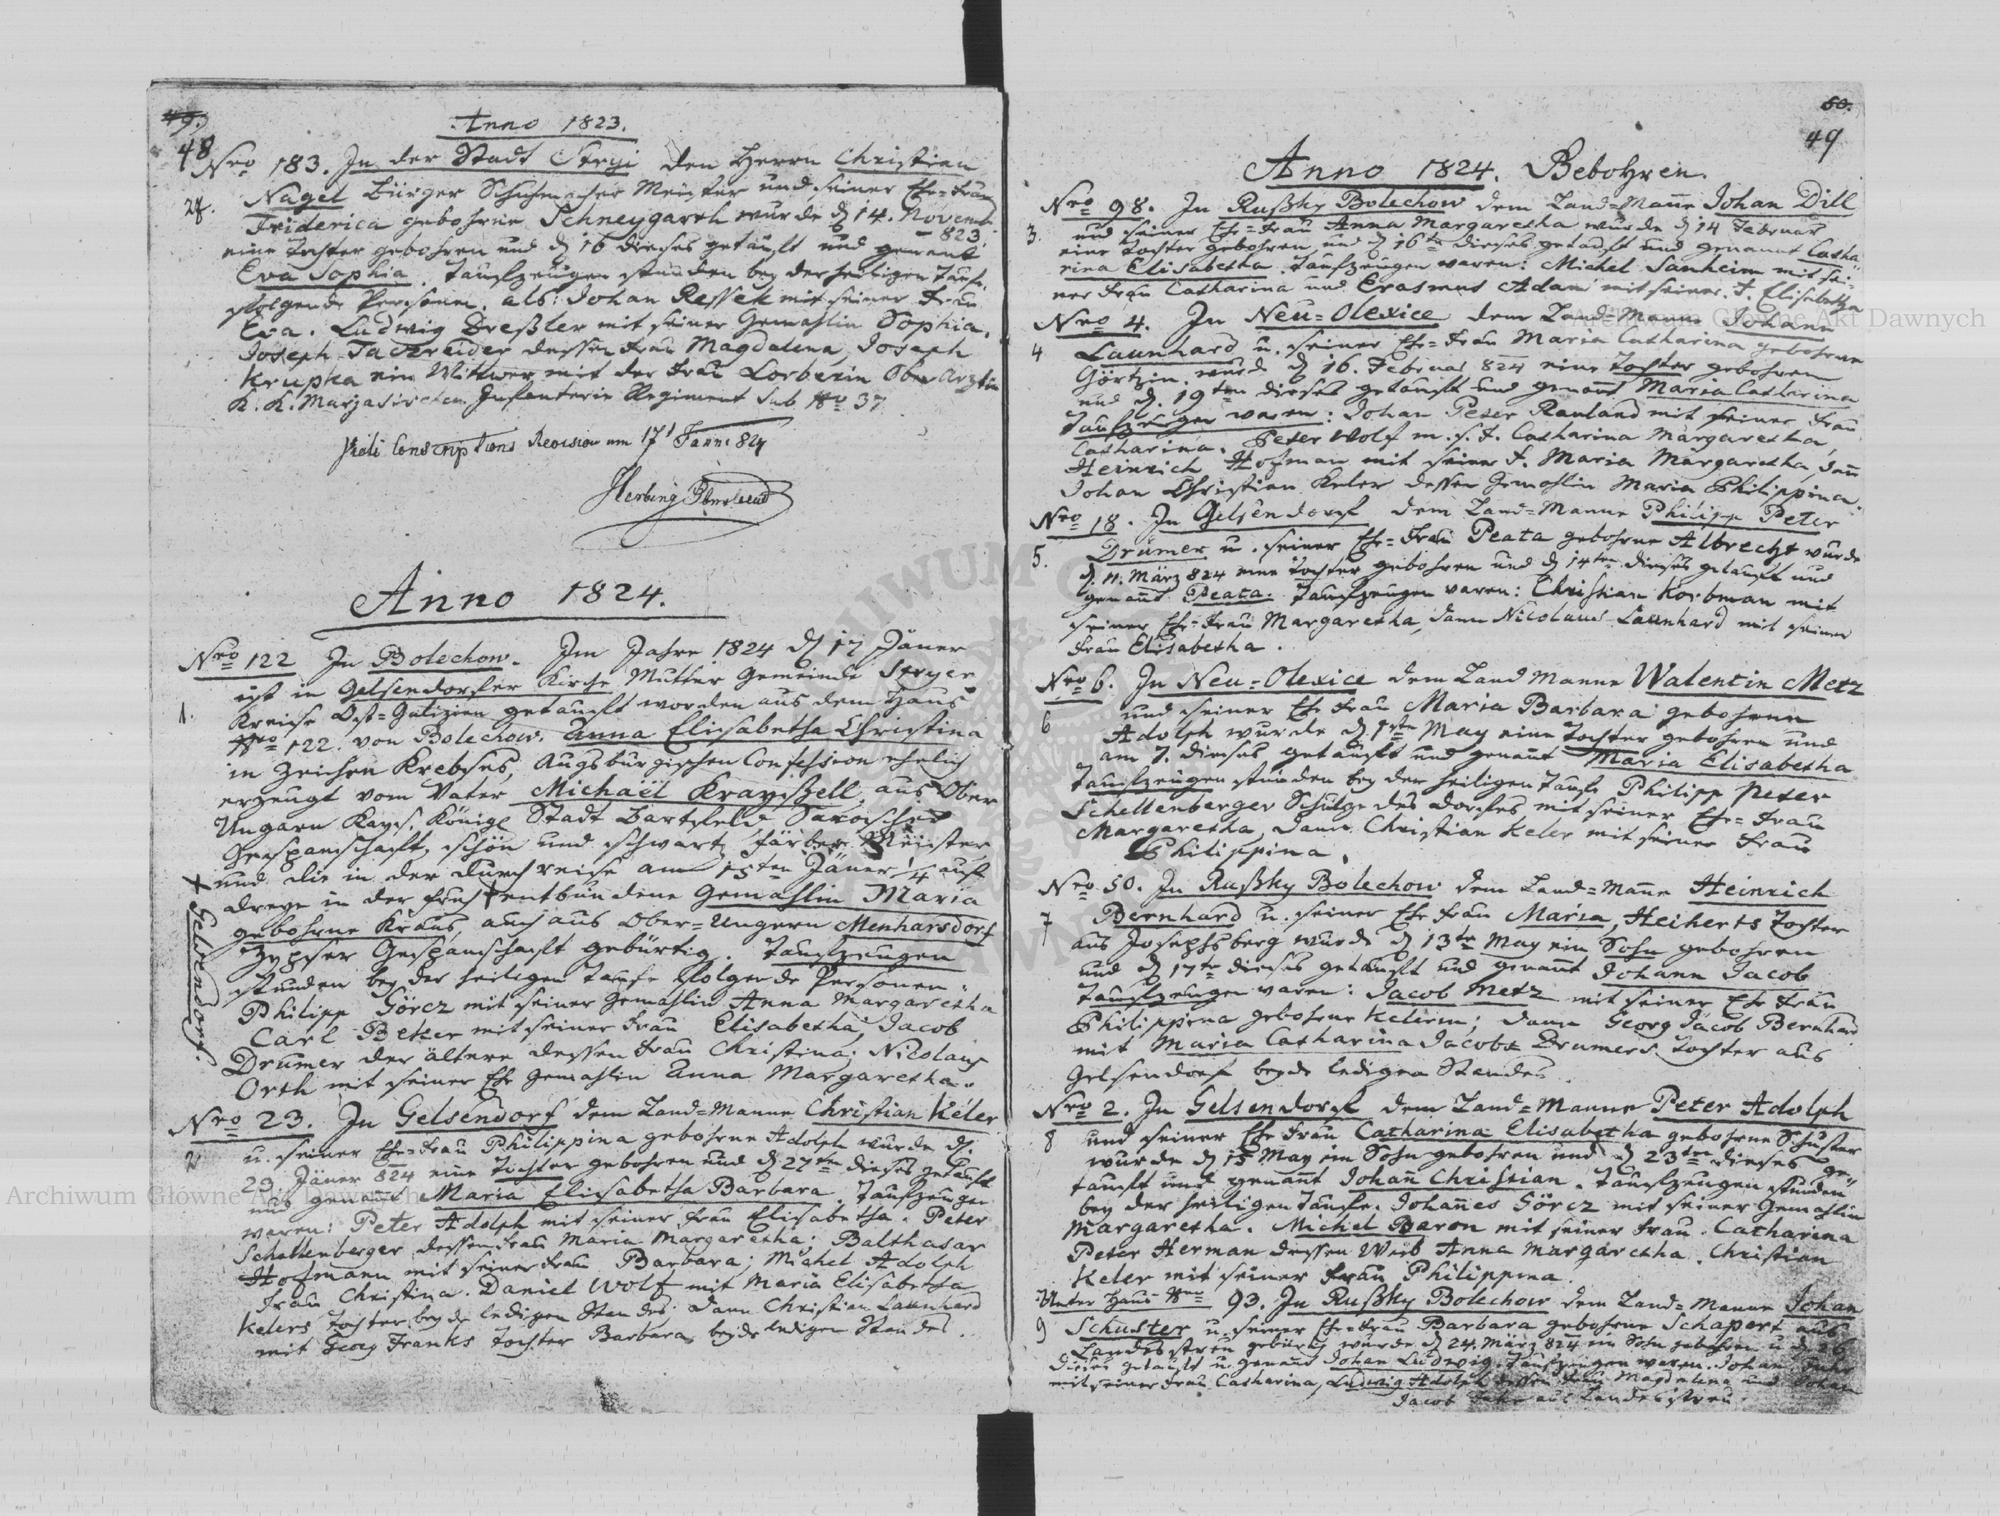 49.
48
Anno 1823.
Nro 183. In der Stadt Stryi den Herrn Christian
28. Nagel Bürger Schuhmacher Meister und seiner Ehe=Frau
Friderica gebohrne Schneygarth wurde d 14. Novemb.
823
eine Tochter gebohren und d 16 dieses getauft und genant
Eva Sophia. Taufzeugen stunden bey der heiligen Taufe
folgende Personen. als: Johan Ressek mit seiner Frau
Eva. Ludwig Dreßler mit seiner Gemahlin Sophia.
Joseph dessen Frau Magdalena, Joseph
Krupka ein Wittwer mit der Frau Lorberin Ober Arztin
K. K. Infanterie Regiment Sub Nro 37
Conscriptions Revision am 17 Janni 824
Anno 1824.
Nro 122 In Bolechow. Im Jahre 1824 d 17 Jäner
ist in Gelsendorfer Kirche Mutter Gemeinde Stryer
1. Kreise Ost=Galizien getauft worden aus dem Haus
Nro 122. von Bolechow. Anna Elisabetha Christina
in Zeichen Krebses, Augsburgischen Confession ehelich
erzeugt vom Vater Michaël Krayszell, aus Ober
Ungarn Kays. Königl Stadt Bartfeld Saroscher
Gespanschaft, schön und schwartz Färber Meister
und die in der Durchreise am 15ten Jäner 1/4 auf
dreye in der Fruh entbundene Gemahlin Maria
gebohrne Kraus, auch aus Ober=Ungern Menharsdorf
Zypser Gespanschaft gebürtig. Taufzeugen
stunden bey der heiligen Taufe folgende Personen:
Philipp Görcz mit seiner Gemahlin Anna Margaretha
Carl Beker mit seiner Frau Elisabetha, Jacob
Drumer der ältere dessen Frau Christina; Nicolaus
Orth mit seiner Ehe Gemahlin Anna Margaretha.
+ Gelsendorf.
Nro 23. In Gelsendorf dem Land=Manne Christian Keler
2 u. seiner Ehe=Frau Philippina gebohrne Adolph wurde d.
23 Jäner 824 eine Tochter gebohren und d 27ten dieses getauft
und genant Maria Elisabetha Barbara. Taufzeugen
waren: Peter Adolph mit seiner Frau Elisabetha. Peter
Schellenberger dessen Frau Maria Margaretha; Balthasar
Hofmann mit seiner Frau Barbara; Michel Adolph
Frau Christina. Daniel Wolf mit Maria Elisabetha
Kelers Tochter beyde ledigen Standes. Dann Christian Launhard
mit Georg Franks Tochter Barbara beyde ledigen Standes.
50.
49
Anno 1824. Gebohren.
Nro 98. In Rußky Bolechow dem Land=Mane Johan Dill
3. und seiner Ehe=Frau Anna Margaretha wurde d 14 Februar
eine Tochter gebohren und d 16te dieses getauft und genannt Catha
rina Elisabetha. Taufzeugen waren: Michel Sanheim mit sei-
ner Frau Catharina und Erasmus Adam mit seiner F. Elisabetha
Nro 4. In Neu=Olexice dem Land=Manne Johann
4 Launhard u. seiner Ehe=Frau Maria Catharina gebohrne
Görtzin. wurde d 16. Februar 824 eine Tochter gebohren
und d. 19ten dieses getauft und genant Maria Catharina
Taufzeugen waren: Johan Peter Rauland mit seiner Frau
Catharina. Peter Wolf m. s. F. Catharina Margaretha,
Heinrich Hofman mit seiner F. Maria Margaretha, denn
Johan Christian Keler dessen Gemahlin Maria Philippina.
Nro 18. In Gelsendorf dem Land=Manne Philipp Peter
5. Drumer u. seiner Ehe=Frau Peata gebohrne Albrecht wurde
d. 11. März 824 eine Tochter gebohren und d 14ten dieses getauft und
genant Peata. Taufzeugen waren: Christian Korbman mit
seiner Ehe=Frau Margaretha, dann Nicolaus Launhard mit seiner
Frau Elisabetha.
Nro 6. In Neu=Olexice dem Land Manne Walentin Metz
6 und seiner Ehe Frau Maria Barbara gebohrne
Adolph wurde d. 1ste May eine Tochter gebohren und
am 7. dieses getauft und genant Maria Elisabetha
Taufzeugen stunden bey der heiligen Taufe Philipp Peter
Schellenberger Schulze des Dorfes mit seiner Ehe=Frau
Margaretha, dann Christian Keler mit seiner Frau
Philippina.
Nro 50. In Rußky Bolechow dem Land=Mane Heinrich
7 Bernhard u. seiner Ehe Frau Maria, Heiherts Tochter
aus Josephsberg wurde d 13te May ein Sohn gebohren
und d 17te dieses getauft und genant Johann Jacob
Taufzeugen waren: Jacob Metz mit seiner Ehe Frau
Philippina gebohrne Kelerin; dann Georg Jacob Bernhard
mit Maria Catharina Jacobs Drumers Tochter aus
Gelsendorf beyde ledigen Standes.
Nro 2. In Gelsendorf dem Land=Manne Peter Adolph
8 und seiner Ehe Frau Catharina Elisabetha gebohrne Schuster
wurde d 15 May ein Sohn gebohren und d 23ten dieses ge-
tauft und genant Johan Christian. Taufzeugen stunden
bey der heiligen Taufe. Johannes Görcz mit seiner Gemahlin
Margaretha. Michel Baron mit seiner Frau Catharina
Peter Herman dessen Weib Anna Margaretha. Christian
Keler mit seiner Frau Philippina.
Unter Haus Nro 93. In Rußky Bolechow dem Land=Manne Johan
9 Schuster u. seiner Ehe=Frau Barbara gebohrne Schapert aus
Landestreu gebürtig wurde d 24. März 824 ein Sohn gebohren u. d 26
dieses getauft u. genant Johan Ludwig. Taufzeugen waren. Johan
mit seiner Frau Catharina, Ludwig Adolph dessen Frau Magdalena und Johan
Jacob aus Landestreu.
Archiwum Główne Akt Dawnych
Archiwum Główne Akt Dawnych